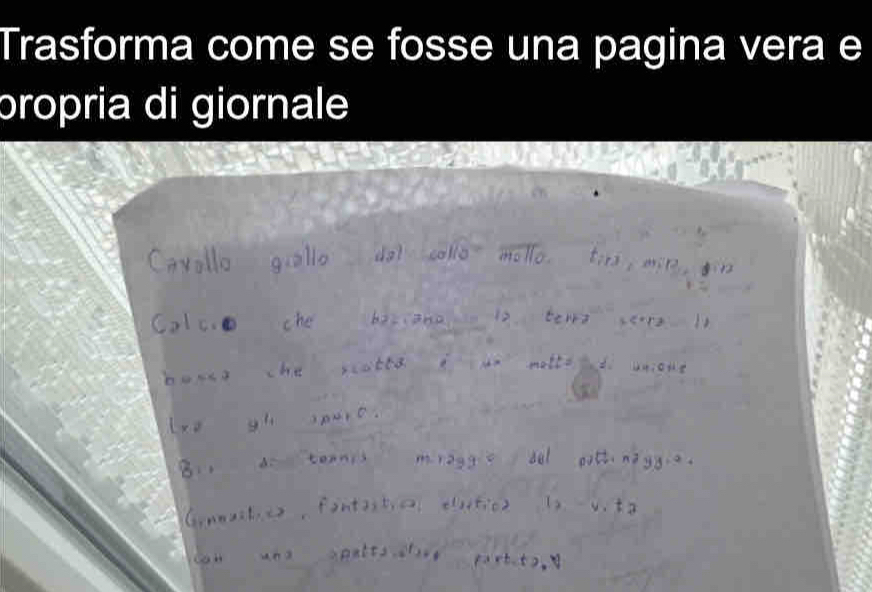 Trasforma come se fosse una pagina vera e
propria di giornale
Cavallo giallo dal collo mollo. tira, mira, gira
Calcio che baciano la terra serra la
bocca che scotta è un motto di unione
tra gli sport.
Bis di tennis miraggio del pattinaggio.
Ginnastica, fantastica, elastica la vita
con una spettacolare partita.